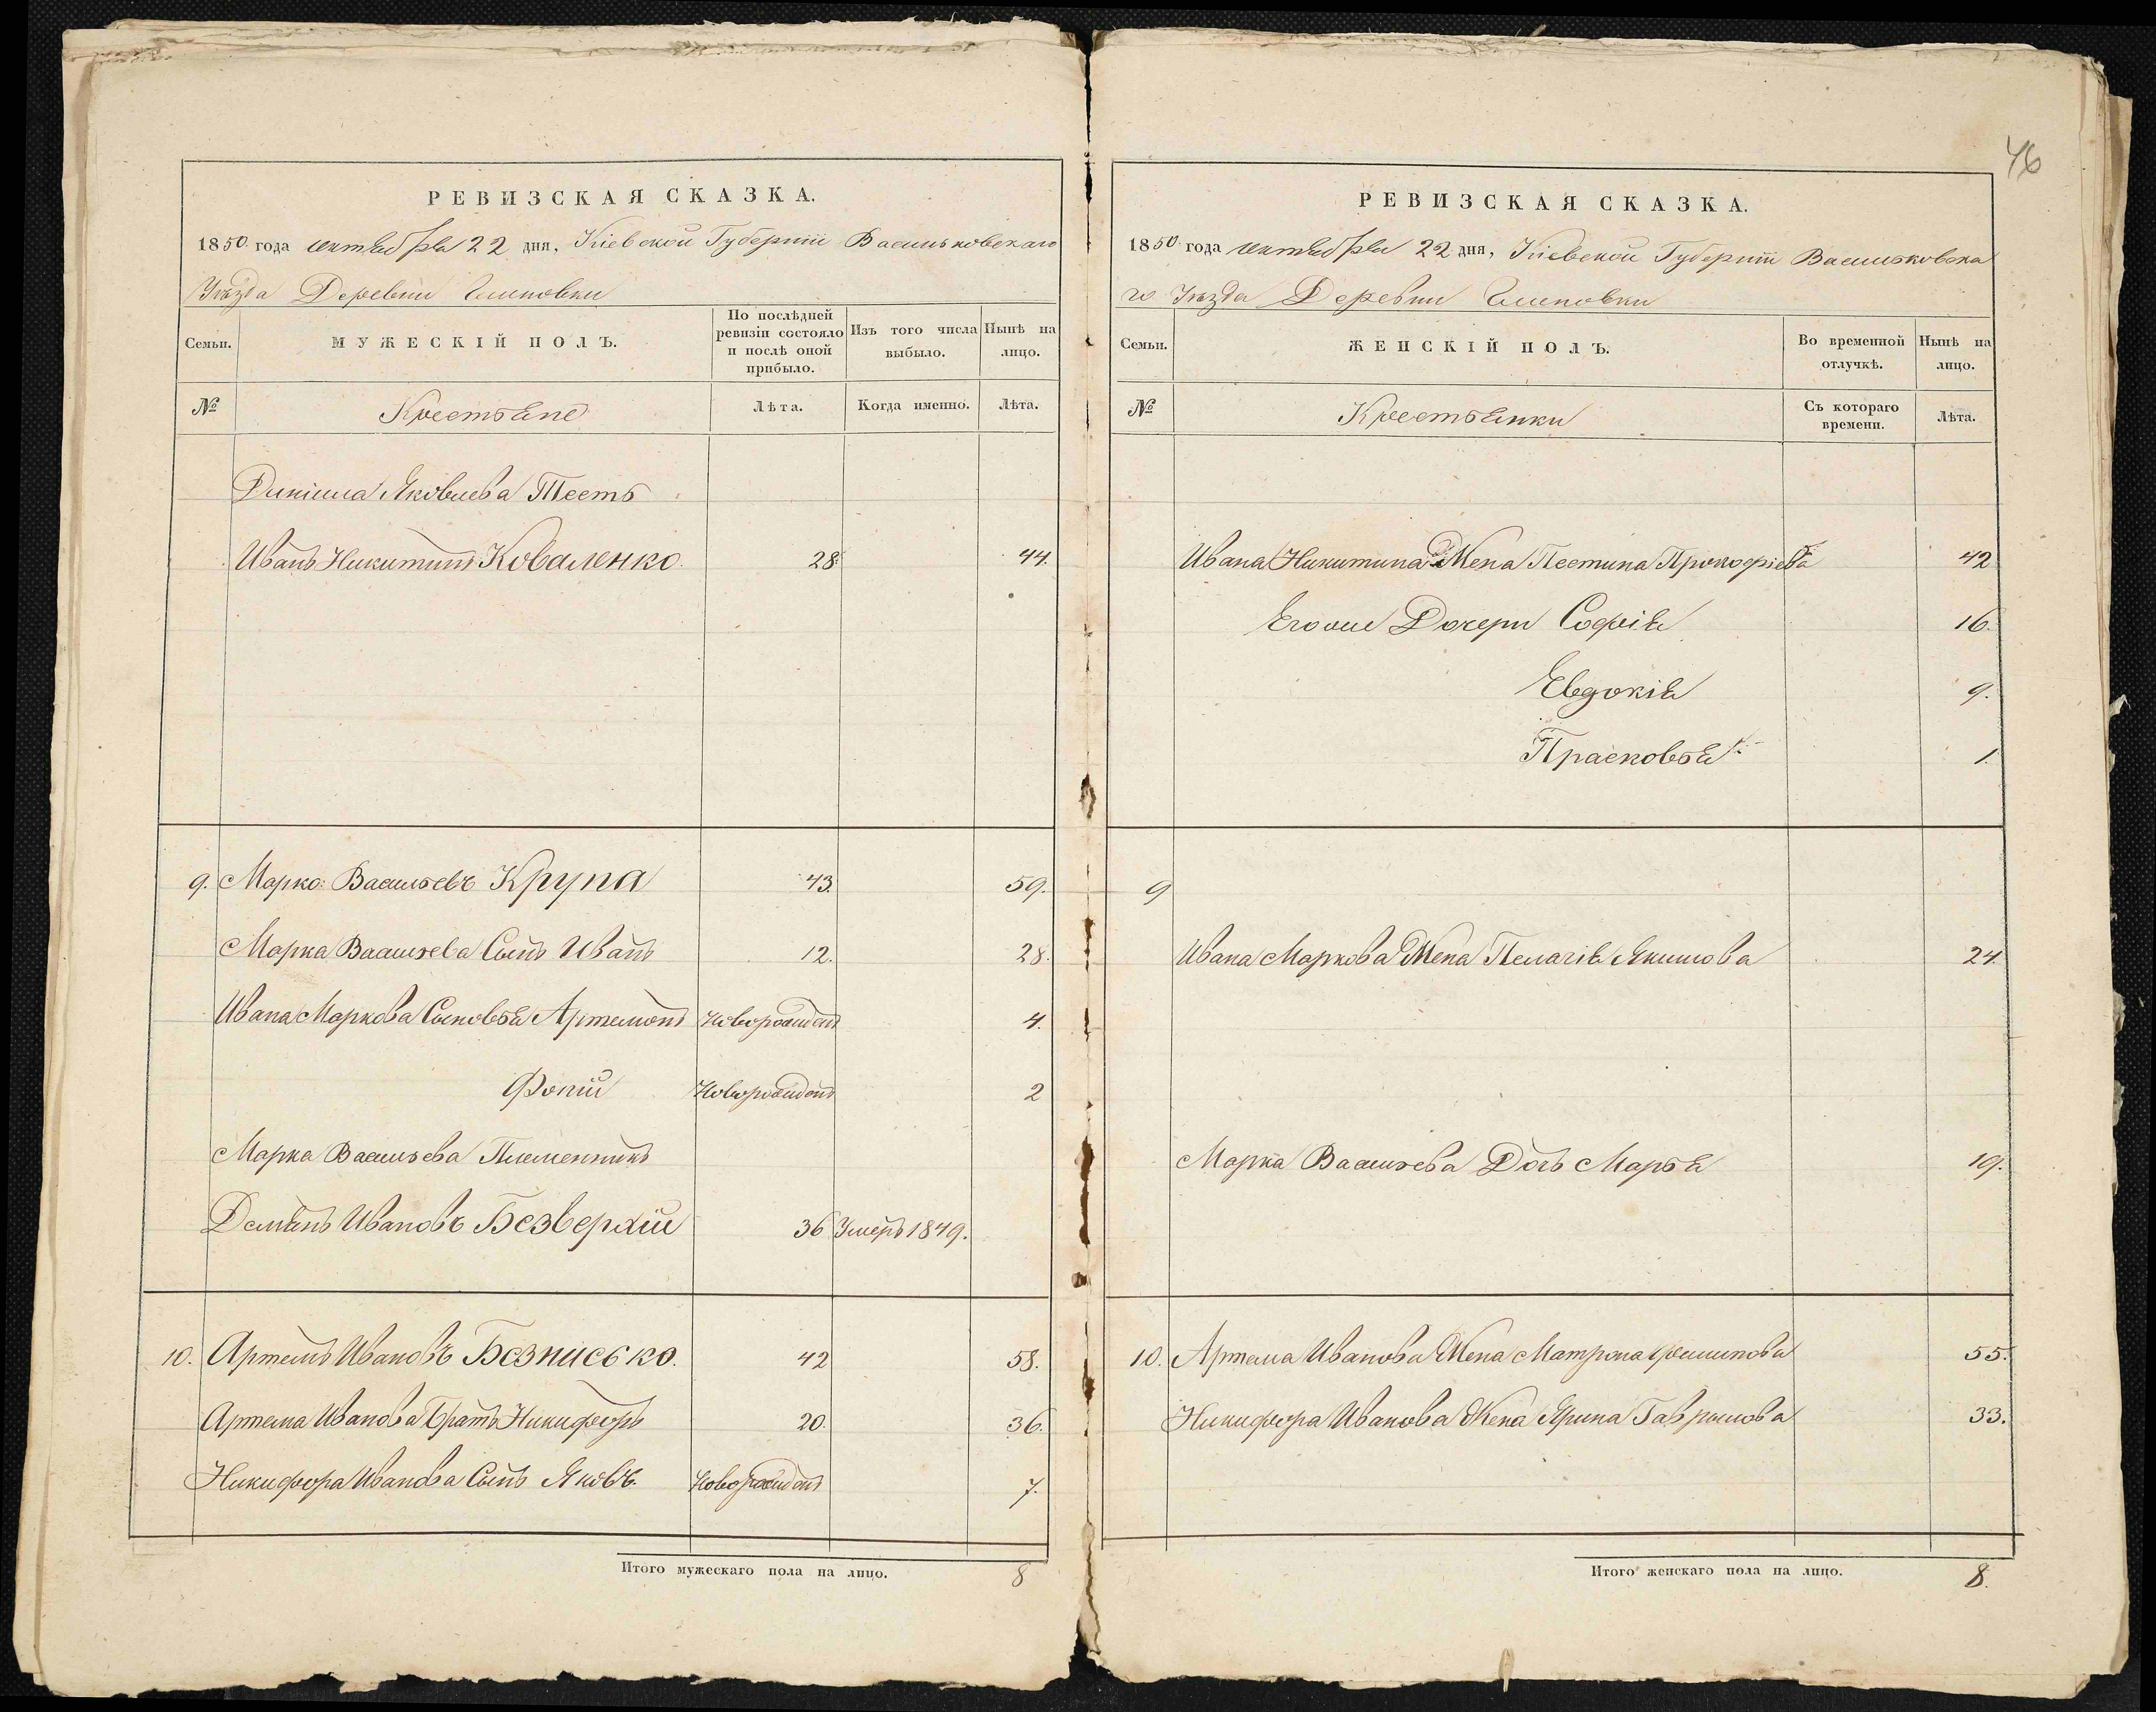 46
РЕВИЗСКАЯ СКАЗКА.
1850 года октября 22 дня, Кіевской Губерніи Васильковскаго
Уѣзда Деревни
Семьи.
МУЖЕСКІЙ ПОЛЪ.
По послѣдней ревизіи состояло и послѣ оной прибыло.
Изъ того числа выбыло.
Нынѣ на лицо.
№
Крестьяне
Лѣта.
Когда именно.
Лѣта.
Яковлева Тесть
Иванъ Никитинъ Коваленко. 28. 44.
9. Марко Васильевъ Крупа 43. 59.
Марка Васильева Сынъ Иванъ 12. 28.
Ивана Маркова Сыновья Артемонъ Новорожденъ 4.
Фотій Новорожденъ 2
Марка Васильева Племенникъ
Демьянъ Ивановъ Безверхій 36 Умеръ 1849.
10. Артемъ Ивановъ Безписько. 42 58.
Артема Иванова Братъ Никифоръ 20. 36.
Никифора Иванова Сынъ Яковъ. Новорожденъ 7.
Итого мужескаго пола на лицо. 8
РЕВИЗСКАЯ СКАЗКА.
1850 года октября 22 дня, Кіевской Губерніи Васильковска
го Уѣзда Деревни
Семьи.
ЖЕНСКІЙ ПОЛЪ.
Во временной отлучкѣ.
Нынѣ на лицо.
№
Крестьянки
Съ котораго времени.
Лѣта.
Ивана Никитина Жена Устина Прокофіева 42
Его же Дочери Софія 16.
Евдокія 9.
Прасковья 1.
9
Ивана Маркова Жена Пелагія Якимова 24.
Марка Васильева Дочь Марья 19.
10. Артема Иванова Жена Матрона 55.
Никифора Иванова Жена Ярина Гаврилова 33.
Итого женскаго пола на лицо. 8.